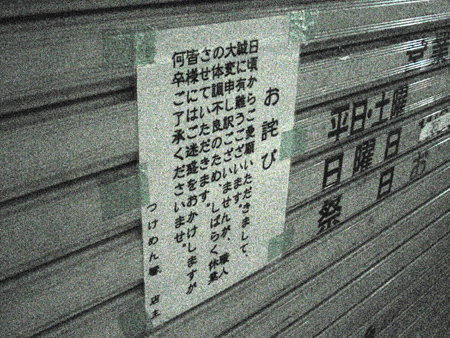 お詫び
日頃からご愛顧いただきまして、
誠に有難うございます。
大変申し訳ございませんが、職人
の体調不良のため、しばらく休業
させていただきます。
皆様にはご迷惑をおかけしますが
何卒ご了承くださいませ。
つけめん
店主
営業
平日・土曜
日曜日
祭日
お